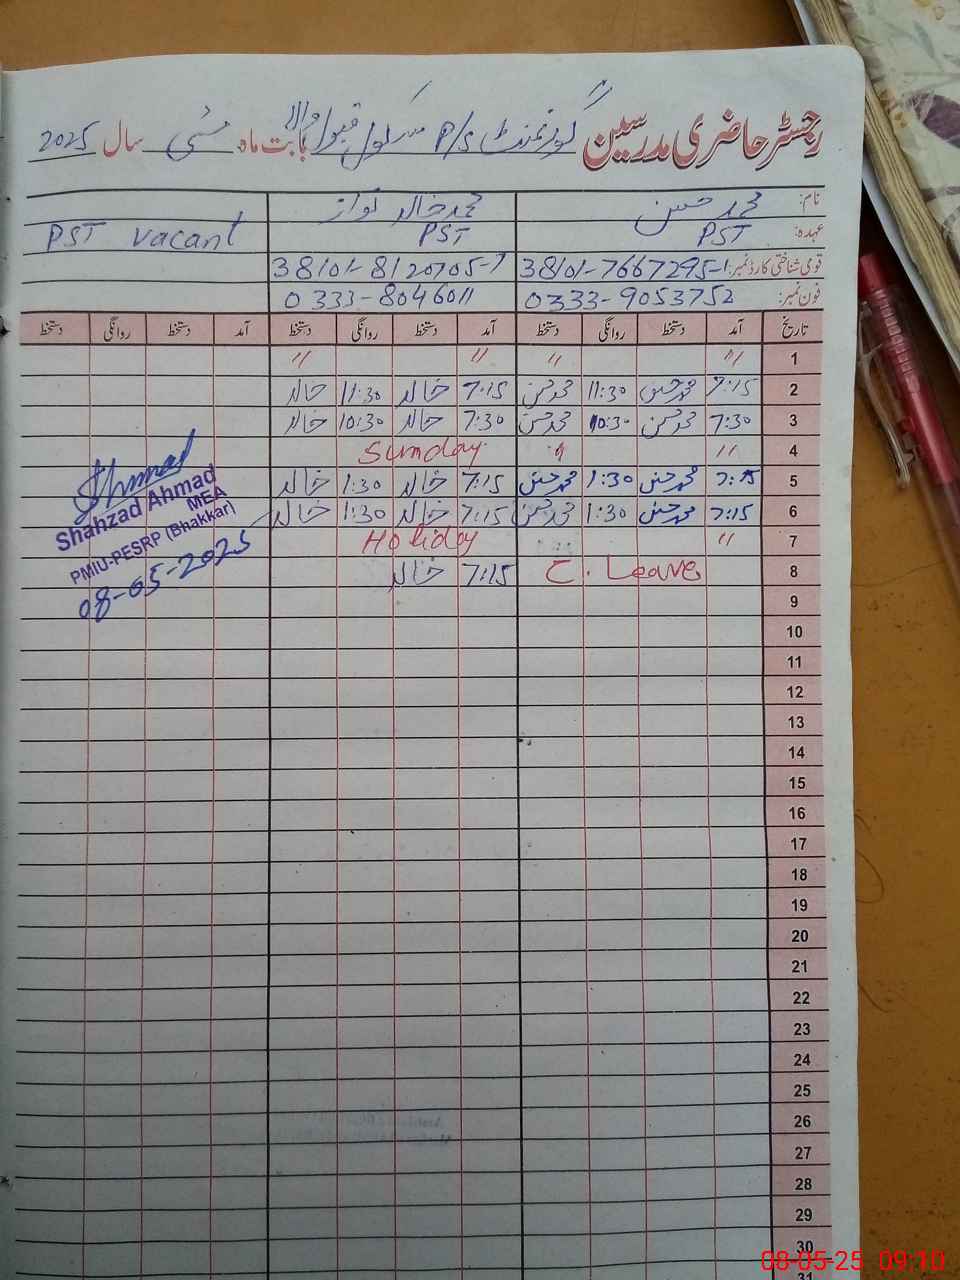 رجسٹر حاضری مدرسین گورنمنٹ P/S سکول قبولوالا بابت ماہ مئی سال 2025
نام: محمد حسن محمد خالد نواز
عہدہ: PST PST PST Vacant
قومی شناختی کارڈ نمبر: 38101-7667295-1 38101-8120705-7
فون نمبر: 0333-9053752 0333-8046011
تاریخ آمد دستخط روانگی دستخط آمد دستخط روانگی دستخط آمد دستخط روانگی دستخط
1 〃 〃 〃 〃
2 7:15 محمد حسن 11:30 محمد حسن 7:15 خالد 11:30 خالد
3 7:30 محمد حسن 10:30 محمد حسن 7:30 خالد 10:30 خالد
4 〃 〃 Sunday
5 7:15 محمد حسن 1:30 محمد حسن 7:15 خالد 1:30 خالد
6 7:15 محمد حسن 1:30 محمد حسن 7:15 خالد 1:30 خالد
7 〃 Holiday
8 C. Leave 7:15 خالد
Ahmad
Shahzad Ahmad
MEA
PMIU-PESRP (Bhakkar)
08-05-2025
9
10
11
12
13
14
15
16
17
18
19
20
21
22
23
24
25
26
27
28
29
30
31
08-05-25 09:10